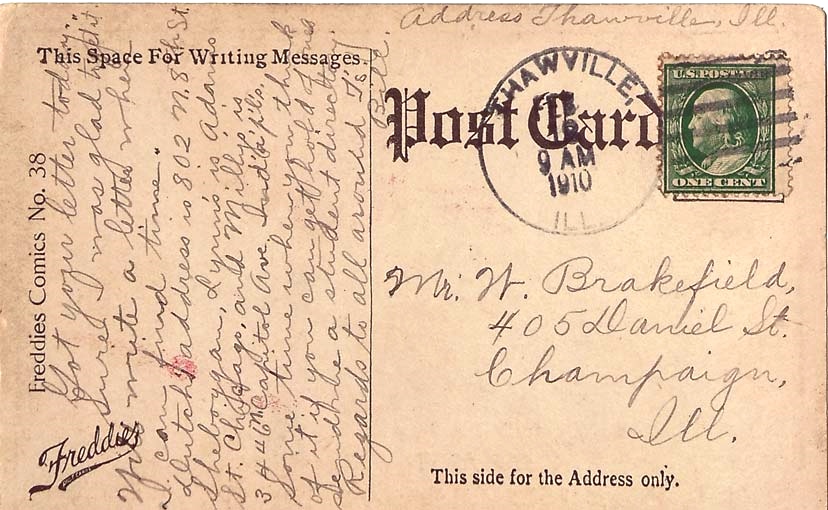 Address Thawville, Ill.
This Space For Writing Messages
Post Card
THAWVILLE,
FEB
9 AM
1910
ILL.
U.S. POSTAGE
ONE CENT
Freddies Comics No. 38
Freddies
Got your letter today,
Sure was glad to get it
Will write a letter when
I can find time.
Dutch's address is 802 N. 8th St.
Sheboygan, Lynn's is Adams
St. Chicago, and Millys is
344 N Capitol Ave. Ind'a'pls.
Some time when you think
of it if you can get hold of one
send me a student directory.
Regards to all around Is'l
Bill.
Mr. W. Brakefield,
405 Daniel St.
Champaign,
Ill.
This side for the Address only.